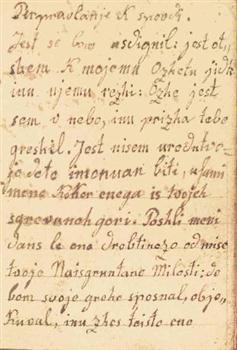 Perpravlanje K spovdi.
Jest se bom usdignil: jest ot,
shem K mojemu Ozhetu jidti
inu njemu rezhi: Ozhe jest
sem v nebo, inu prizha tebe
greshil. Jest nisem urednu tvo,
imenuan biti, usami
mene Kòker enega is tvojeh
gori. Poshli meni
dans le eno drobtinezo od mise
tvoje Milosti: de
bom svoje grehe sposnal, obje,
Kuval, inu zhes toisto eno